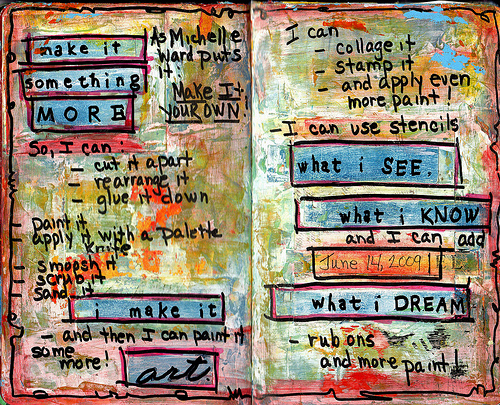 make it
something
MORE
As Michelle
Ward puts
it
Make It
YOUR OWN!
So, I can:
- cut it apart
- rearrange it
- glue it down
- paint it
- apply it with a palette
knife
- smoosh it
- scrub it
- sand it
i make it
- and then I can paint it
some
more!
art.
I can
- collage it
- stamp it
- and apply even
more paint!
- I can use stencils
what i SEE.
what i KNOW
and I can add
June 14, 2009
what i DREAM
- rub ons
and more paint!